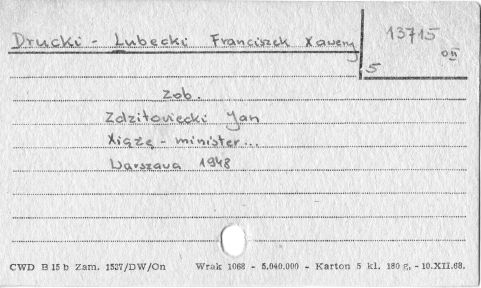 Drucki - Lubecki Franciszek Xawery
13715
5
zob.
Zdzitowiecki Jan
Xiążę - minister...
Warszawa 1948
CWD B 15 b Zam. 1527/DW/On Wrak 1068 - 5.040.000 - Karton 5 kl. 180 g. - 10.XII.68.